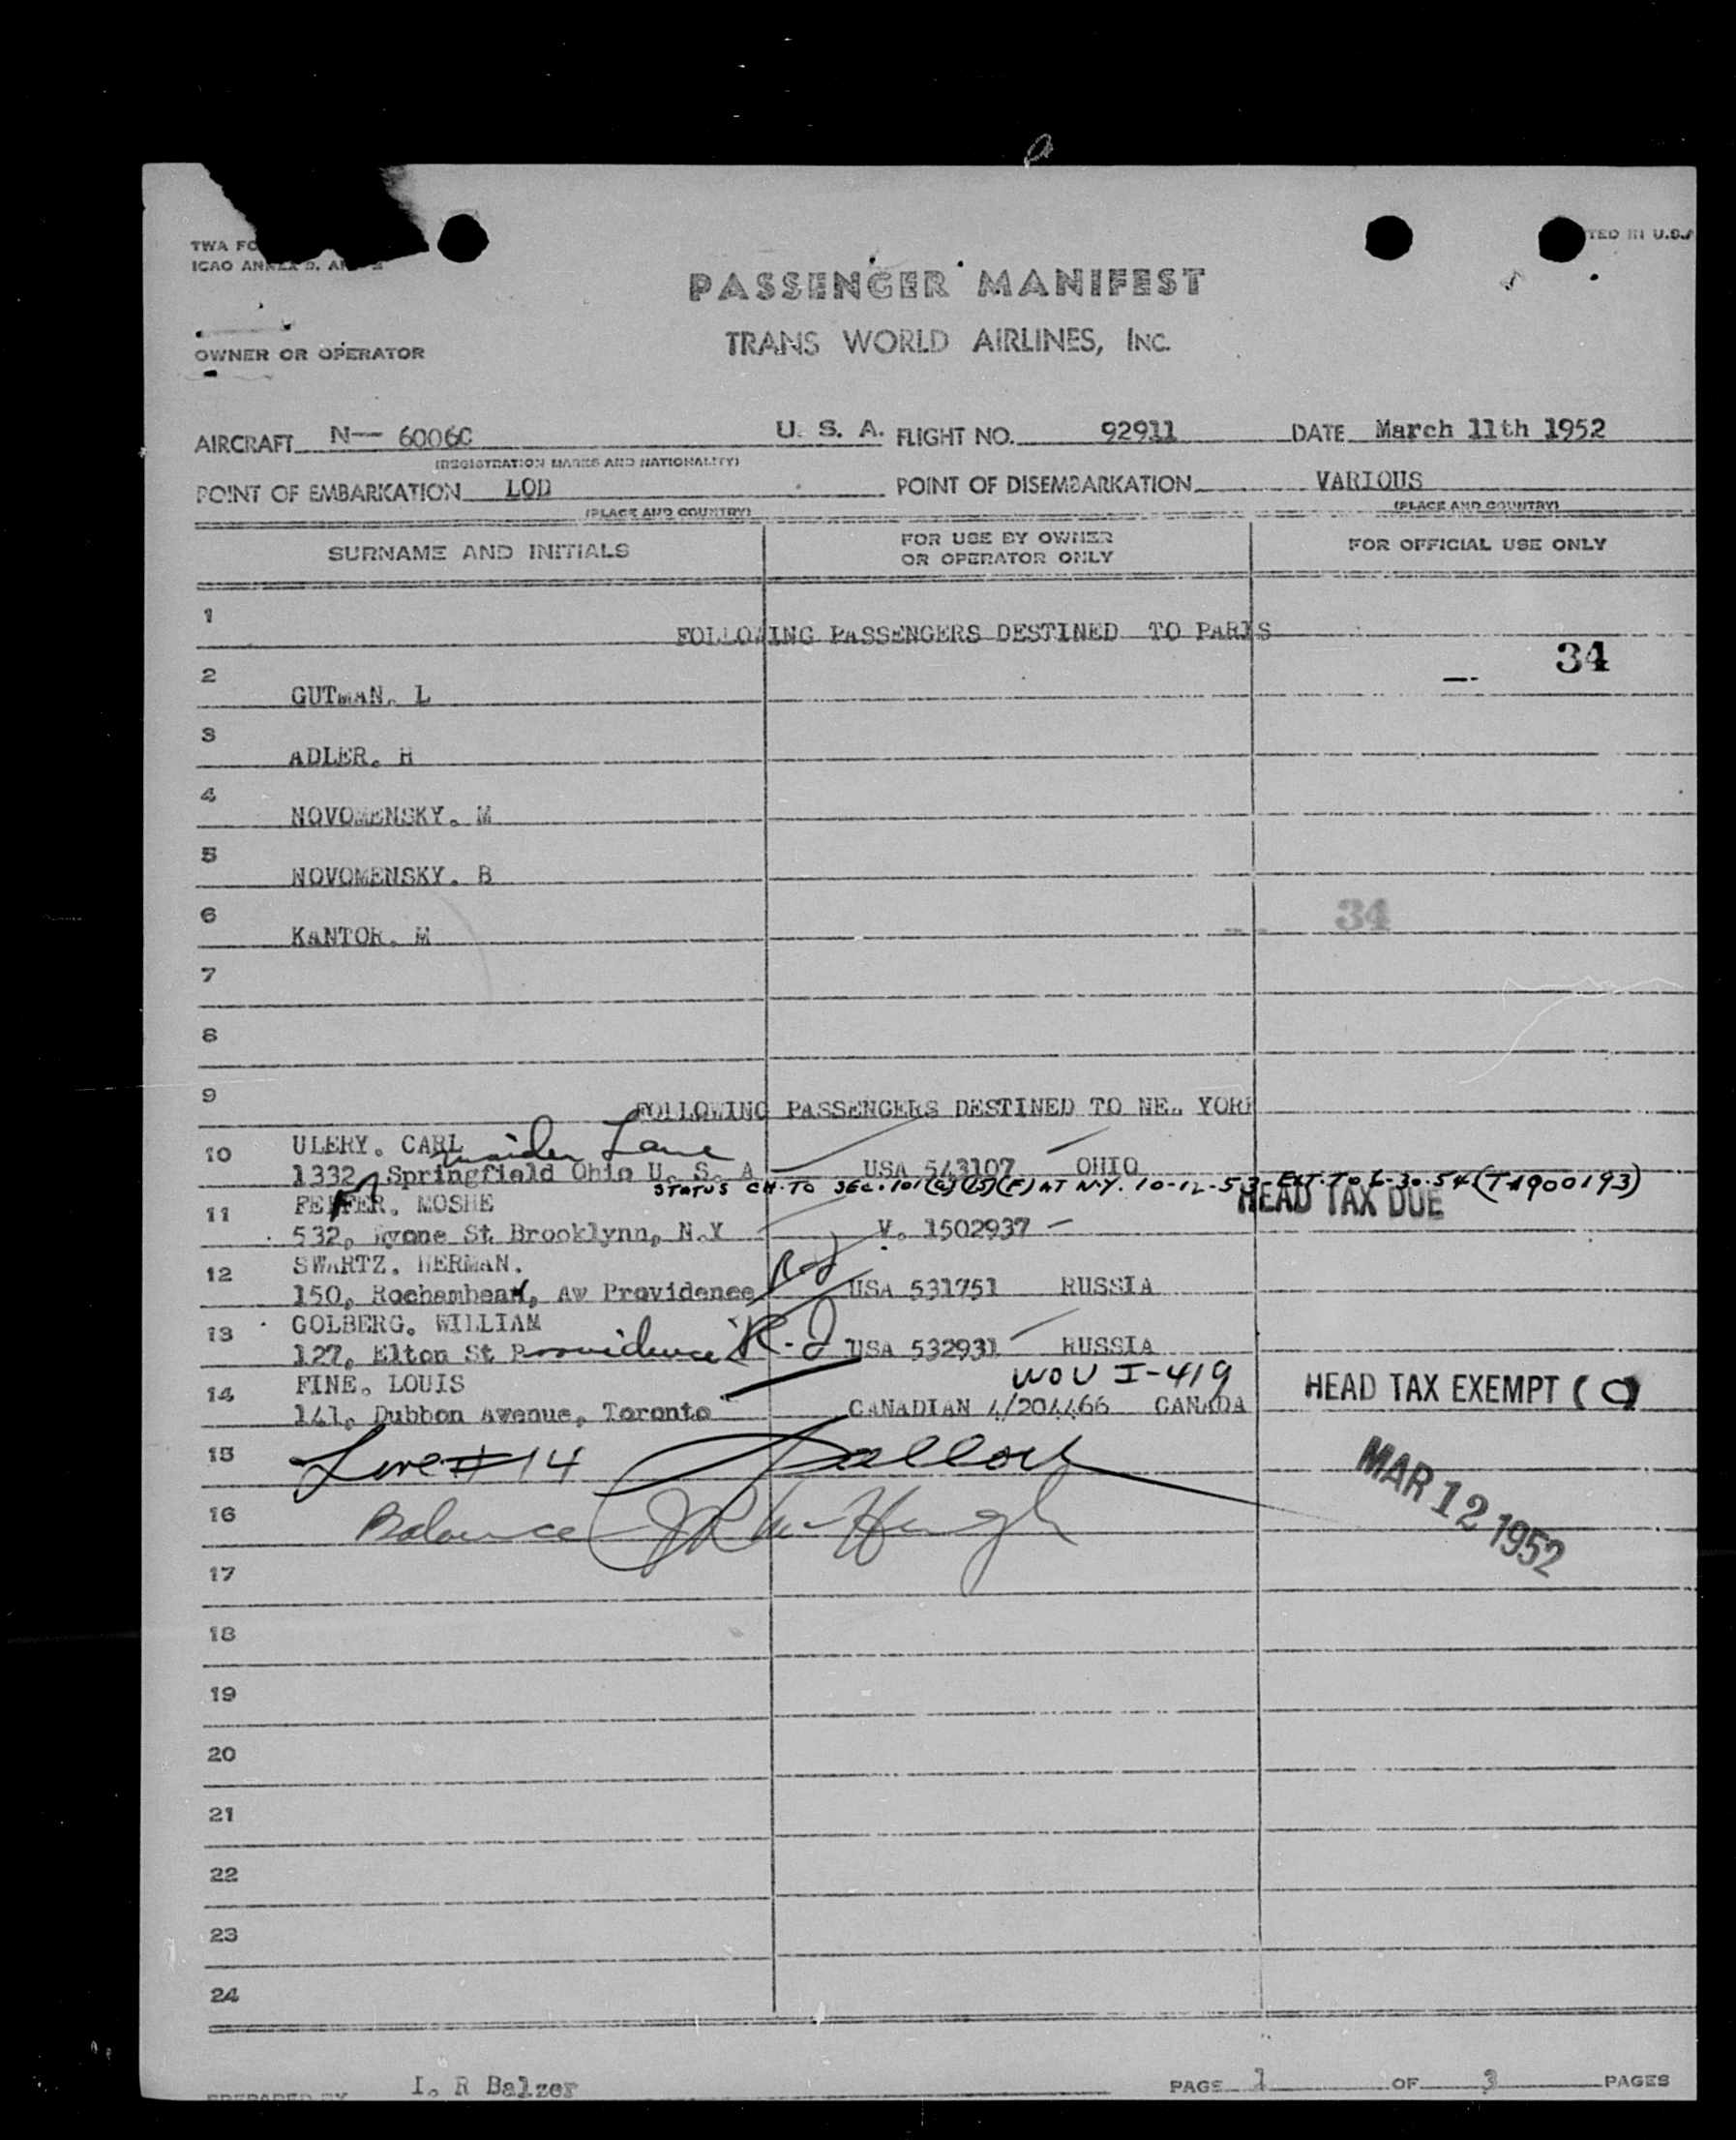 TWA FO
TED IN U.S.A
ICAO ANNEX 9, A
PASSENGER MANIFEST
TRANS WORLD AIRLINES, INC.
OWNER OR OPERATOR
AIRCRAFT N— 6006C U. S. A. FLIGHT NO. 92911 DATE March 11th 1952
(REGISTRATION MARKS AND NATIONALITY)
POINT OF EMBARKATION LOD POINT OF DISEMBARKATION VARIOUS
(PLACE AND COUNTRY) (PLACE AND COUNTRY)
SURNAME AND INITIALS FOR USE BY OWNER OR OPERATOR ONLY FOR OFFICIAL USE ONLY
1 FOLLOWING PASSENGERS DESTINED TO PARIS
34
2 GUTMAN. L
3 ADLER. H
4 NOVOMENSKY. M
5 NOVOMENSKY. B
34
6 KANTOR. M
7
8
9 FOLLOWING PASSENGERS DESTINED TO NEW YORK
10 ULERY. CARL maiden Lane
1332, Springfield Ohio U. S. A USA 543107 OHIO
STATUS CH. TO SEC. 101(a)(15)(F) AT N.Y. 10-12-53 - EXT. TO 6-30-54 (T-1900193)
11 FEFFER. MOSHE HEAD TAX DUE
532, Hyone St. Brooklynn, N.Y V. 1502937
12 SWARTZ. HERMAN.
150, Rochambeau, Av Providence R-I USA 531751 RUSSIA
13 GOLBERG. WILLIAM
127, Elton St Providence R-I USA 532931 RUSSIA
WOU I-419
14 FINE. LOUIS HEAD TAX EXEMPT (C)
141, Dubbon Avenue, Toronto CANADIAN 4/204466 CANADA
15 Line #14
MAR 12 1952
16 Balance JR McHugh
17
18
19
20
21
22
23
24
PREPARED BY I. R Balzer PAGE 1 OF 3 PAGES